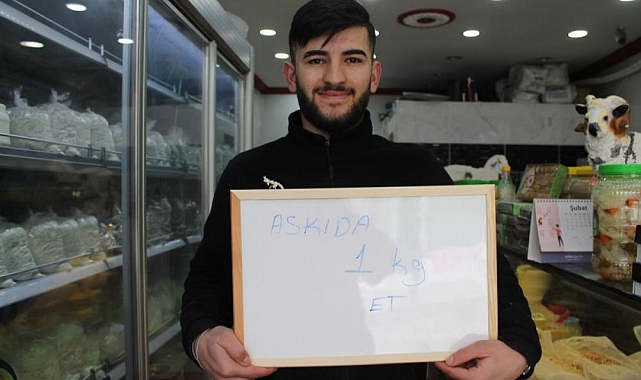 ASKIDA
1 kg
ET
Şubat